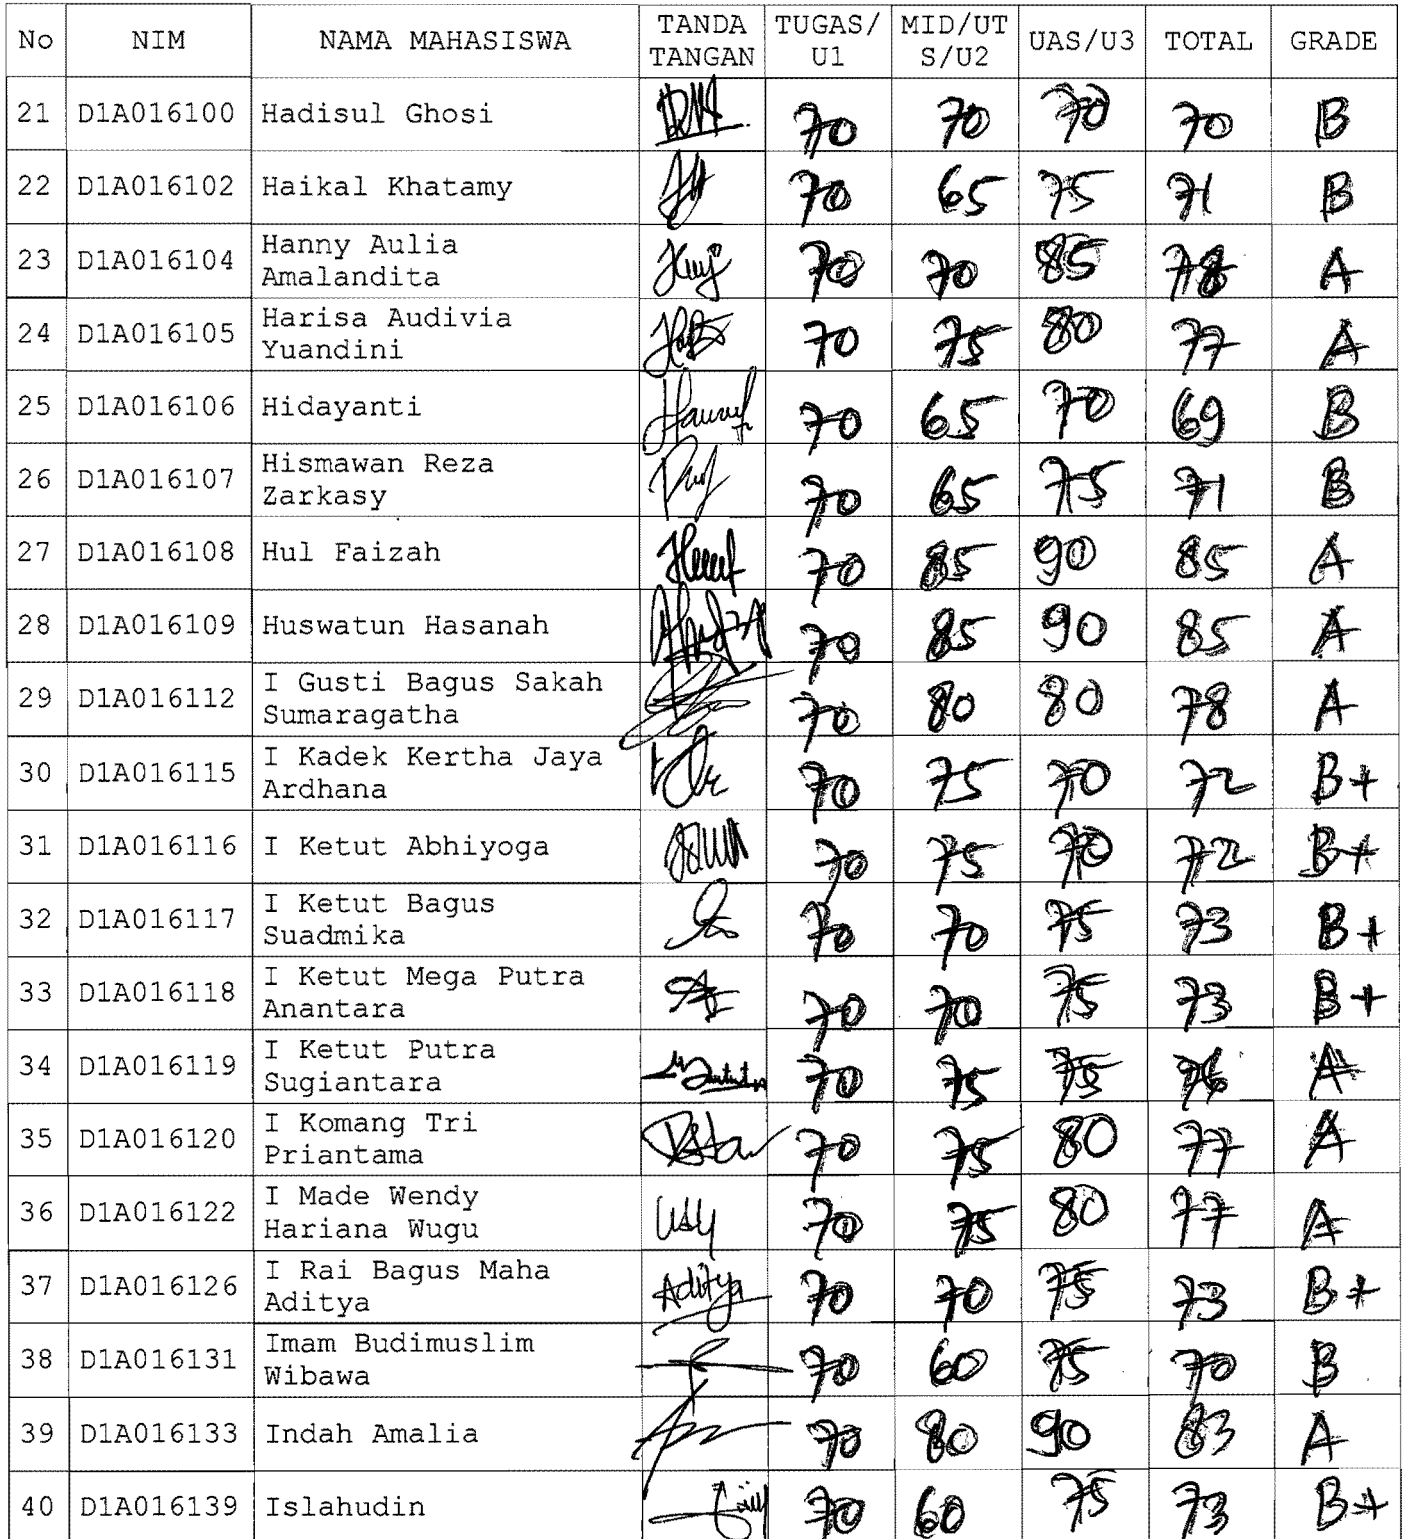 No NIM NAMA MAHASISWA TANDA TANGAN TUGAS/U1 MID/UTS/U2 UAS/U3 TOTAL GRADE
21 D1A016100 Hadisul Ghosi 70 70 70 70 B
22 D1A016102 Haikal Khatamy 70 65 75 71 B
23 D1A016104 Hanny Aulia Amalandita 70 70 85 78 A
24 D1A016105 Harisa Audivia Yuandini 70 75 80 77 A
25 D1A016106 Hidayanti 70 65 70 69 B
26 D1A016107 Hismawan Reza Zarkasy 70 65 75 71 B
27 D1A016108 Hul Faizah 70 85 90 85 A
28 D1A016109 Huswatun Hasanah 70 85 90 85 A
29 D1A016112 I Gusti Bagus Sakah Sumaragatha 70 80 80 78 A
30 D1A016115 I Kadek Kertha Jaya Ardhana 70 75 70 72 B+
31 D1A016116 I Ketut Abhiyoga 70 75 70 72 B+
32 D1A016117 I Ketut Bagus Suadmika 70 70 75 73 B+
33 D1A016118 I Ketut Mega Putra Anantara 70 70 75 73 B+
34 D1A016119 I Ketut Putra Sugiantara 70 75 75 A
35 D1A016120 I Komang Tri Priantama 70 75 80 77 A
36 D1A016122 I Made Wendy Hariana Wugu 70 75 80 77 A
37 D1A016126 I Rai Bagus Maha Aditya Aditya 70 70 75 73 B+
38 D1A016131 Imam Budimuslim Wibawa 70 60 75 70 B
39 D1A016133 Indah Amalia 70 80 90 83 A
40 D1A016139 Islahudin 70 60 75 73 B+